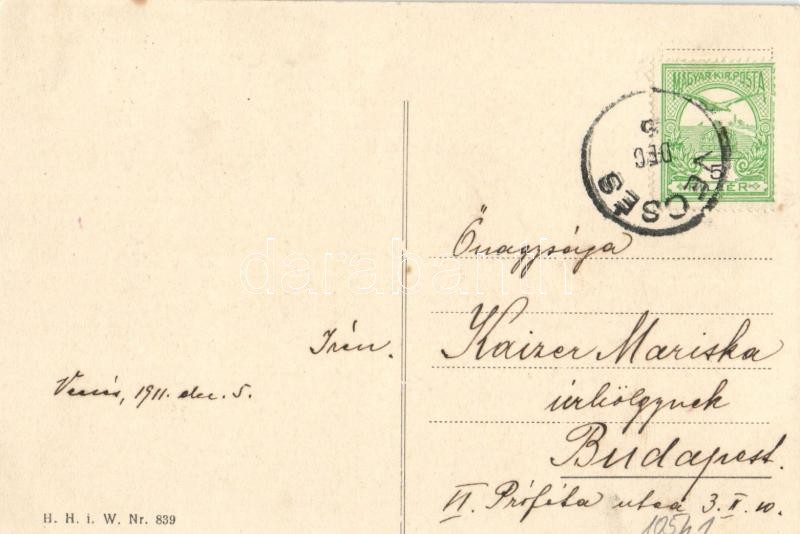 MAGYAR KIR. POSTA
5
VECSÉS
DEC 5
Őnagysága
Irén.
Kaizer Mariska
Vecsés, 1911. dec. 5.
úrhölgynek
Budapest.
II. Próféta utca 3. II. 10.
H. H. i. W. Nr. 839
10541
darabanth